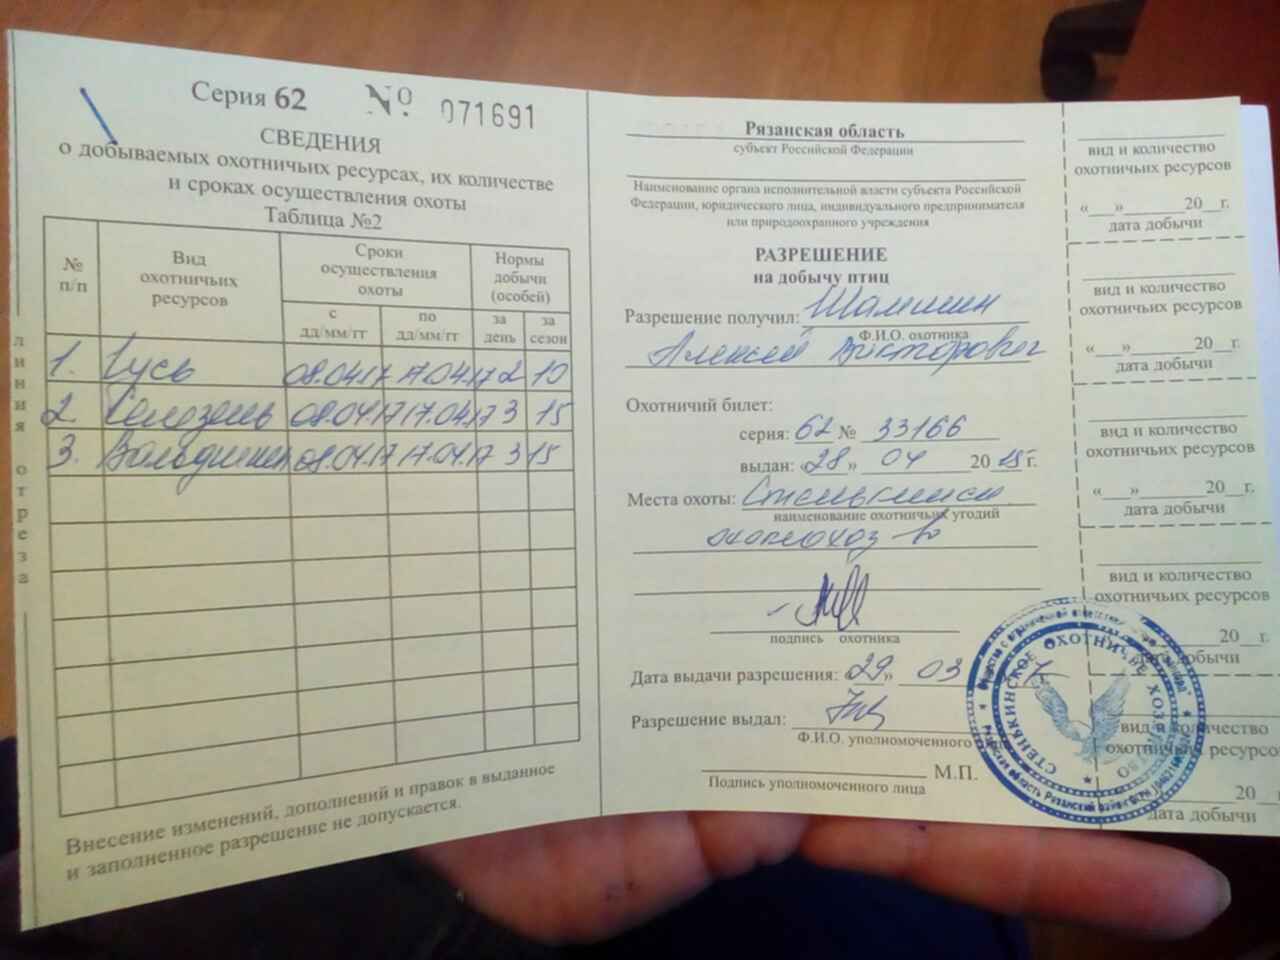 Серия 62 № 071691
СВЕДЕНИЯ
о добываемых охотничьих ресурсах, их количестве
и сроках осуществления охоты
Таблица №2
№ п/п
Вид охотничьих ресурсов
Сроки осуществления охоты
Нормы добычи (особей)
с дд/мм/гг
по дд/мм/гг
за день
за сезон
1. Гусь 08.04.17 17.04.17 2 10
2. Селезень 08.04.17 17.04.17 3 15
3. Вальдшнеп 08.04.17 17.04.17 3 15
Внесение изменений, дополнений и правок в выданное
и заполненное разрешение не допускается.
линия отреза
Рязанская область
субъект Российской Федерации
Наименование органа исполнительной власти субъекта Российской
Федерации, юридического лица, индивидуального предпринимателя
или природоохранного учреждения
РАЗРЕШЕНИЕ
на добычу птиц
Разрешение получил:
Ф.И.О. охотника
Алексей Викторович
Охотничий билет:
серия: 62 № 33166
выдан: «28» 04 2015 г.
Места охоты:
наименование охотничьих угодий
подпись охотника
Дата выдачи разрешения: «29» 03
Разрешение выдал:
Ф.И.О. уполномоченного
Подпись уполномоченного лица
М.П.
СТЕНЬКИНСКОЕ ОХОТНИЧЬЕ ХОЗЯЙСТВО
вид и количество
охотничьих ресурсов
«___»______20__г.
дата добычи
вид и количество
охотничьих ресурсов
«___»______20__г.
дата добычи
вид и количество
охотничьих ресурсов
«___»______20__г.
дата добычи
вид и количество
охотничьих ресурсов
20__г.
дата добычи
вид и количество
охотничьих ресурсо
20
дата добычи